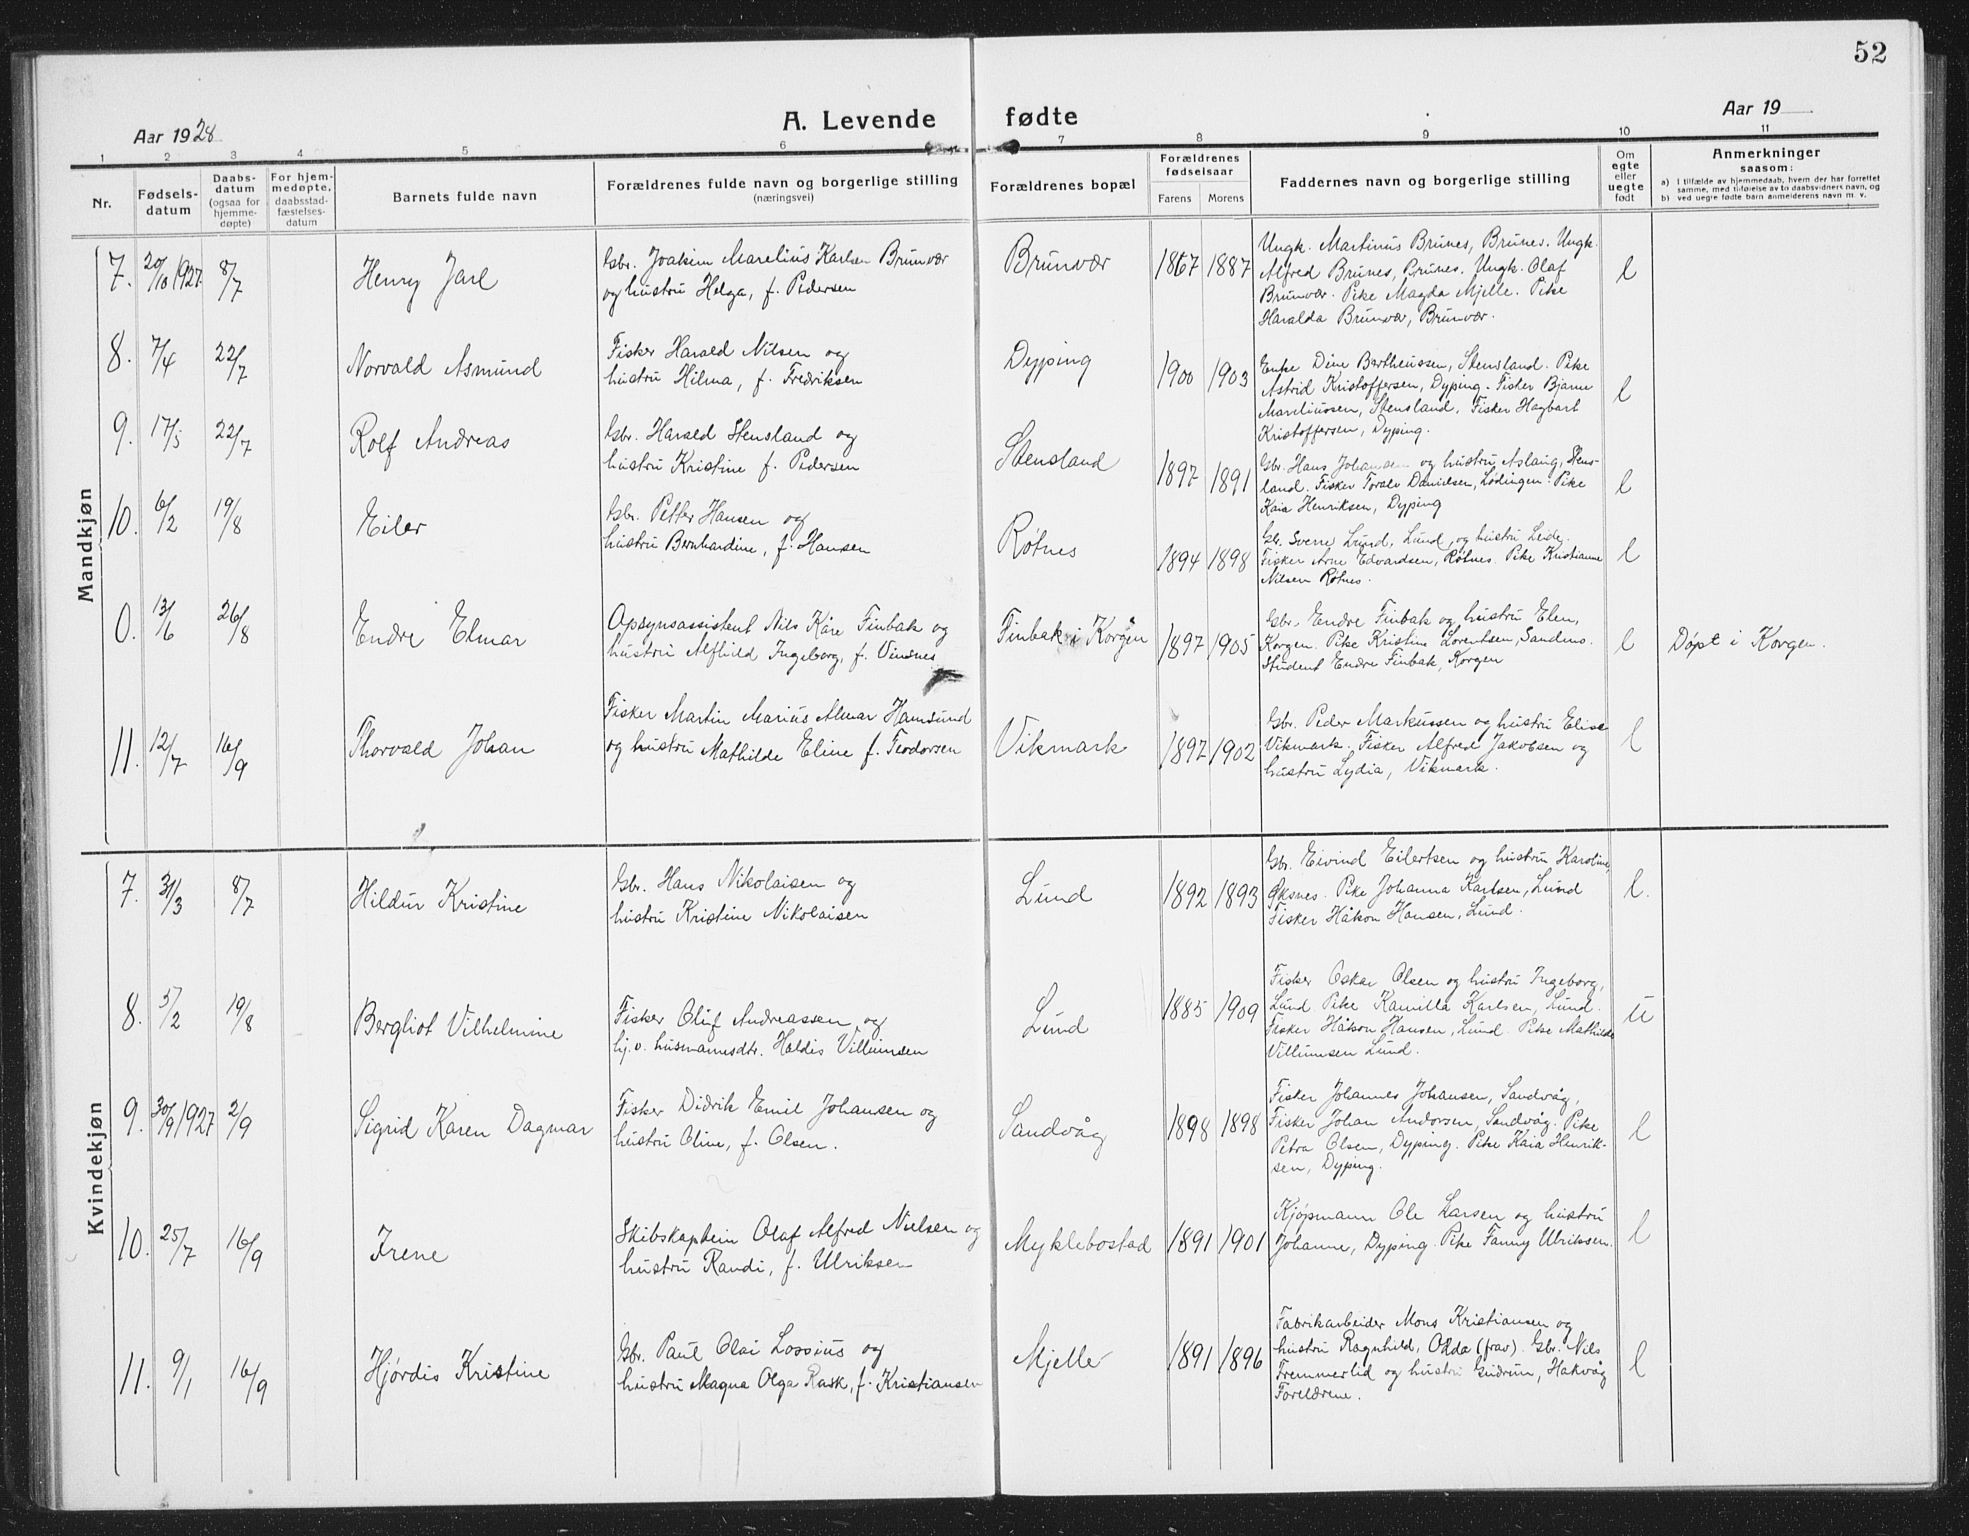 52
Aar 1928
A. Levende fødte
Aar 19
1 2 3 4 5 6 7 8 9 10 11
Nr.
Fødsels-
datum
Daabs-
datum
(ogsaa for
hjemme-
døpte)
For hjem-
medøpte,
daabsstad-
fæstelses-
datum
Barnets fulde navn
Forældrenes fulde navn og borgerlige stilling
(næringsvei)
Forældrenes bopæl
Forældrenes
fødselsaar
Farens Morens
Faddernes navn og borgerlige stilling
Om
egte
eller
uegte
født
Anmerkninger
saasom:
a) I tilfælde av hjemmedaab, hvem der har forrettet
samme, med tilføielse av to daabsvidners navn, og
b) ved uegte fødte barn anmelderens navn m. v.
Mandkjøn
7. 20/10 1927 8/7 Henry Jarl
Gbr. Joakim Marelius Karlsen Brunvær
og hustru Helga, f. Pedersen
Brunvær 1867 1887
Ungk. Martinus Brunes, Brunes. Ungk.
Alfred Brunes, Brunes. Ungk. Olaf
Brunvær. Pike Magda Mjelle. Pike
Haralda Brunvær, Brunvær.
l
8. 7/4 22/7 Norvald Asmund
Fisker Harald Nilsen og
hustru Hilma, f. Fredriksen
Dyping 1900 1903
Enke Dine Bartheussen, Stensland. Pike
Astrid Kristoffersen, Dyping. Fisker Bjarne
Mareliussen, Stensland. Fisker Hagbart
Kristoffersen, Dyping.
l
9. 17/5 22/7 Rolf Andreas
Gbr. Harald Stensland og
hustru Kristine f. Pedersen
Stensland 1897 1891
Gbr. Hans Johansen og hustru Aslaug, Stens-
land. Fisker Toralv Danielsen, Lødingen. Pike
Kaia Henriksen, Dyping
l
10. 6/2 19/8 Eiler
Gbr. Petter Hansen og
hustru Bernhardine, f. Hansen
Røtnes 1894 1898
Gbr. Sverre Lund, Lund, og hustru Leide.
Fisker Arne Edvardsen, Røtnes. Pike Kristianne
Nilsen Røtnes.
l
0. 13/6 26/8 Endre Elmar
Opsynsassistent Nils Kåre Finbak og
hustru Alfhild Ingeborg, f. Vindnes
Finbak i Korgen 1897 1905
Gbr. Endre Finbak og hustru Elen,
Korgen. Pike Kristine Lorentsen, Sandnes.
Student Endre Finbak, Korgen
l Døpt i Korgen.
11. 12/7 16/9 Thorvald Johan
Fisker Martin Marius Almar Hamsund
og hustru Mathilde Eline f. Teodorsen
Vikmark 1897 1902
Gbr. Peder Markussen og hustru Elise
Vikmark. Fisker Alfred Jakobsen og
hustru Lydia, Vikmark.
l
Kvindekjøn
7. 31/3 8/7 Hildur Kristine
Gbr. Hans Nikolaisen og
hustru Kristine Nikolaisen
Lund 1892 1893
Gbr. Eivind Eilertsen og hustru Karoline,
Øksnes. Pike Johanna Karlsen, Lund
Fisker Håkon Hansen, Lund.
l.
8. 5/2 19/8 Bergliot Vilhelmine
Fisker Oluf Andreassen og
hj.v. husmannsdtr. Haldis Villumsen
Lund 1885 1909
Fisker Oskar Olsen og hustru Ingeborg,
Lund. Pike Kamilla Karlsen, Lund.
Fisker Håkon Hansen, Lund. Pike Mathilde
Villumsen Lund.
u
9. 30/9 1927 2/9 Sigrid Karen Dagmar
Fisker Didrik Emil Johansen og
hustru Oline, f. Olsen.
Sandvåg 1898 1898
Fisker Johannes Johansen, Sandvåg,
Fisker Johan Andorsen, Sandvåg. Pike
Petra Olsen, Dyping. Pike Kaia Henrik-
sen, Dyping.
l
10. 25/7 16/9 Irene
Skibskaptein Olaf Alfred Nielsen og
hustru Randi, f. Ulriksen
Myklebostad 1891 1901
Kjøpmann Ole Larsen og hustru
Johanne, Dyping. Pike Fanny Ulriksen.
l
11. 9/1 16/9 Hjørdis Kristine
Gbr. Paul Olai Lossius og
hustru Magna Olga Rask, f. Kristiansen
Mjelle 1891 1896
Fabrikarbeider Mons Kristiansen og
hustru Ragnhild, Odda (frav). Gbr. Nils
Fremmerlid og hustru Gudrun, Hakvåg
Foreldrene.
l